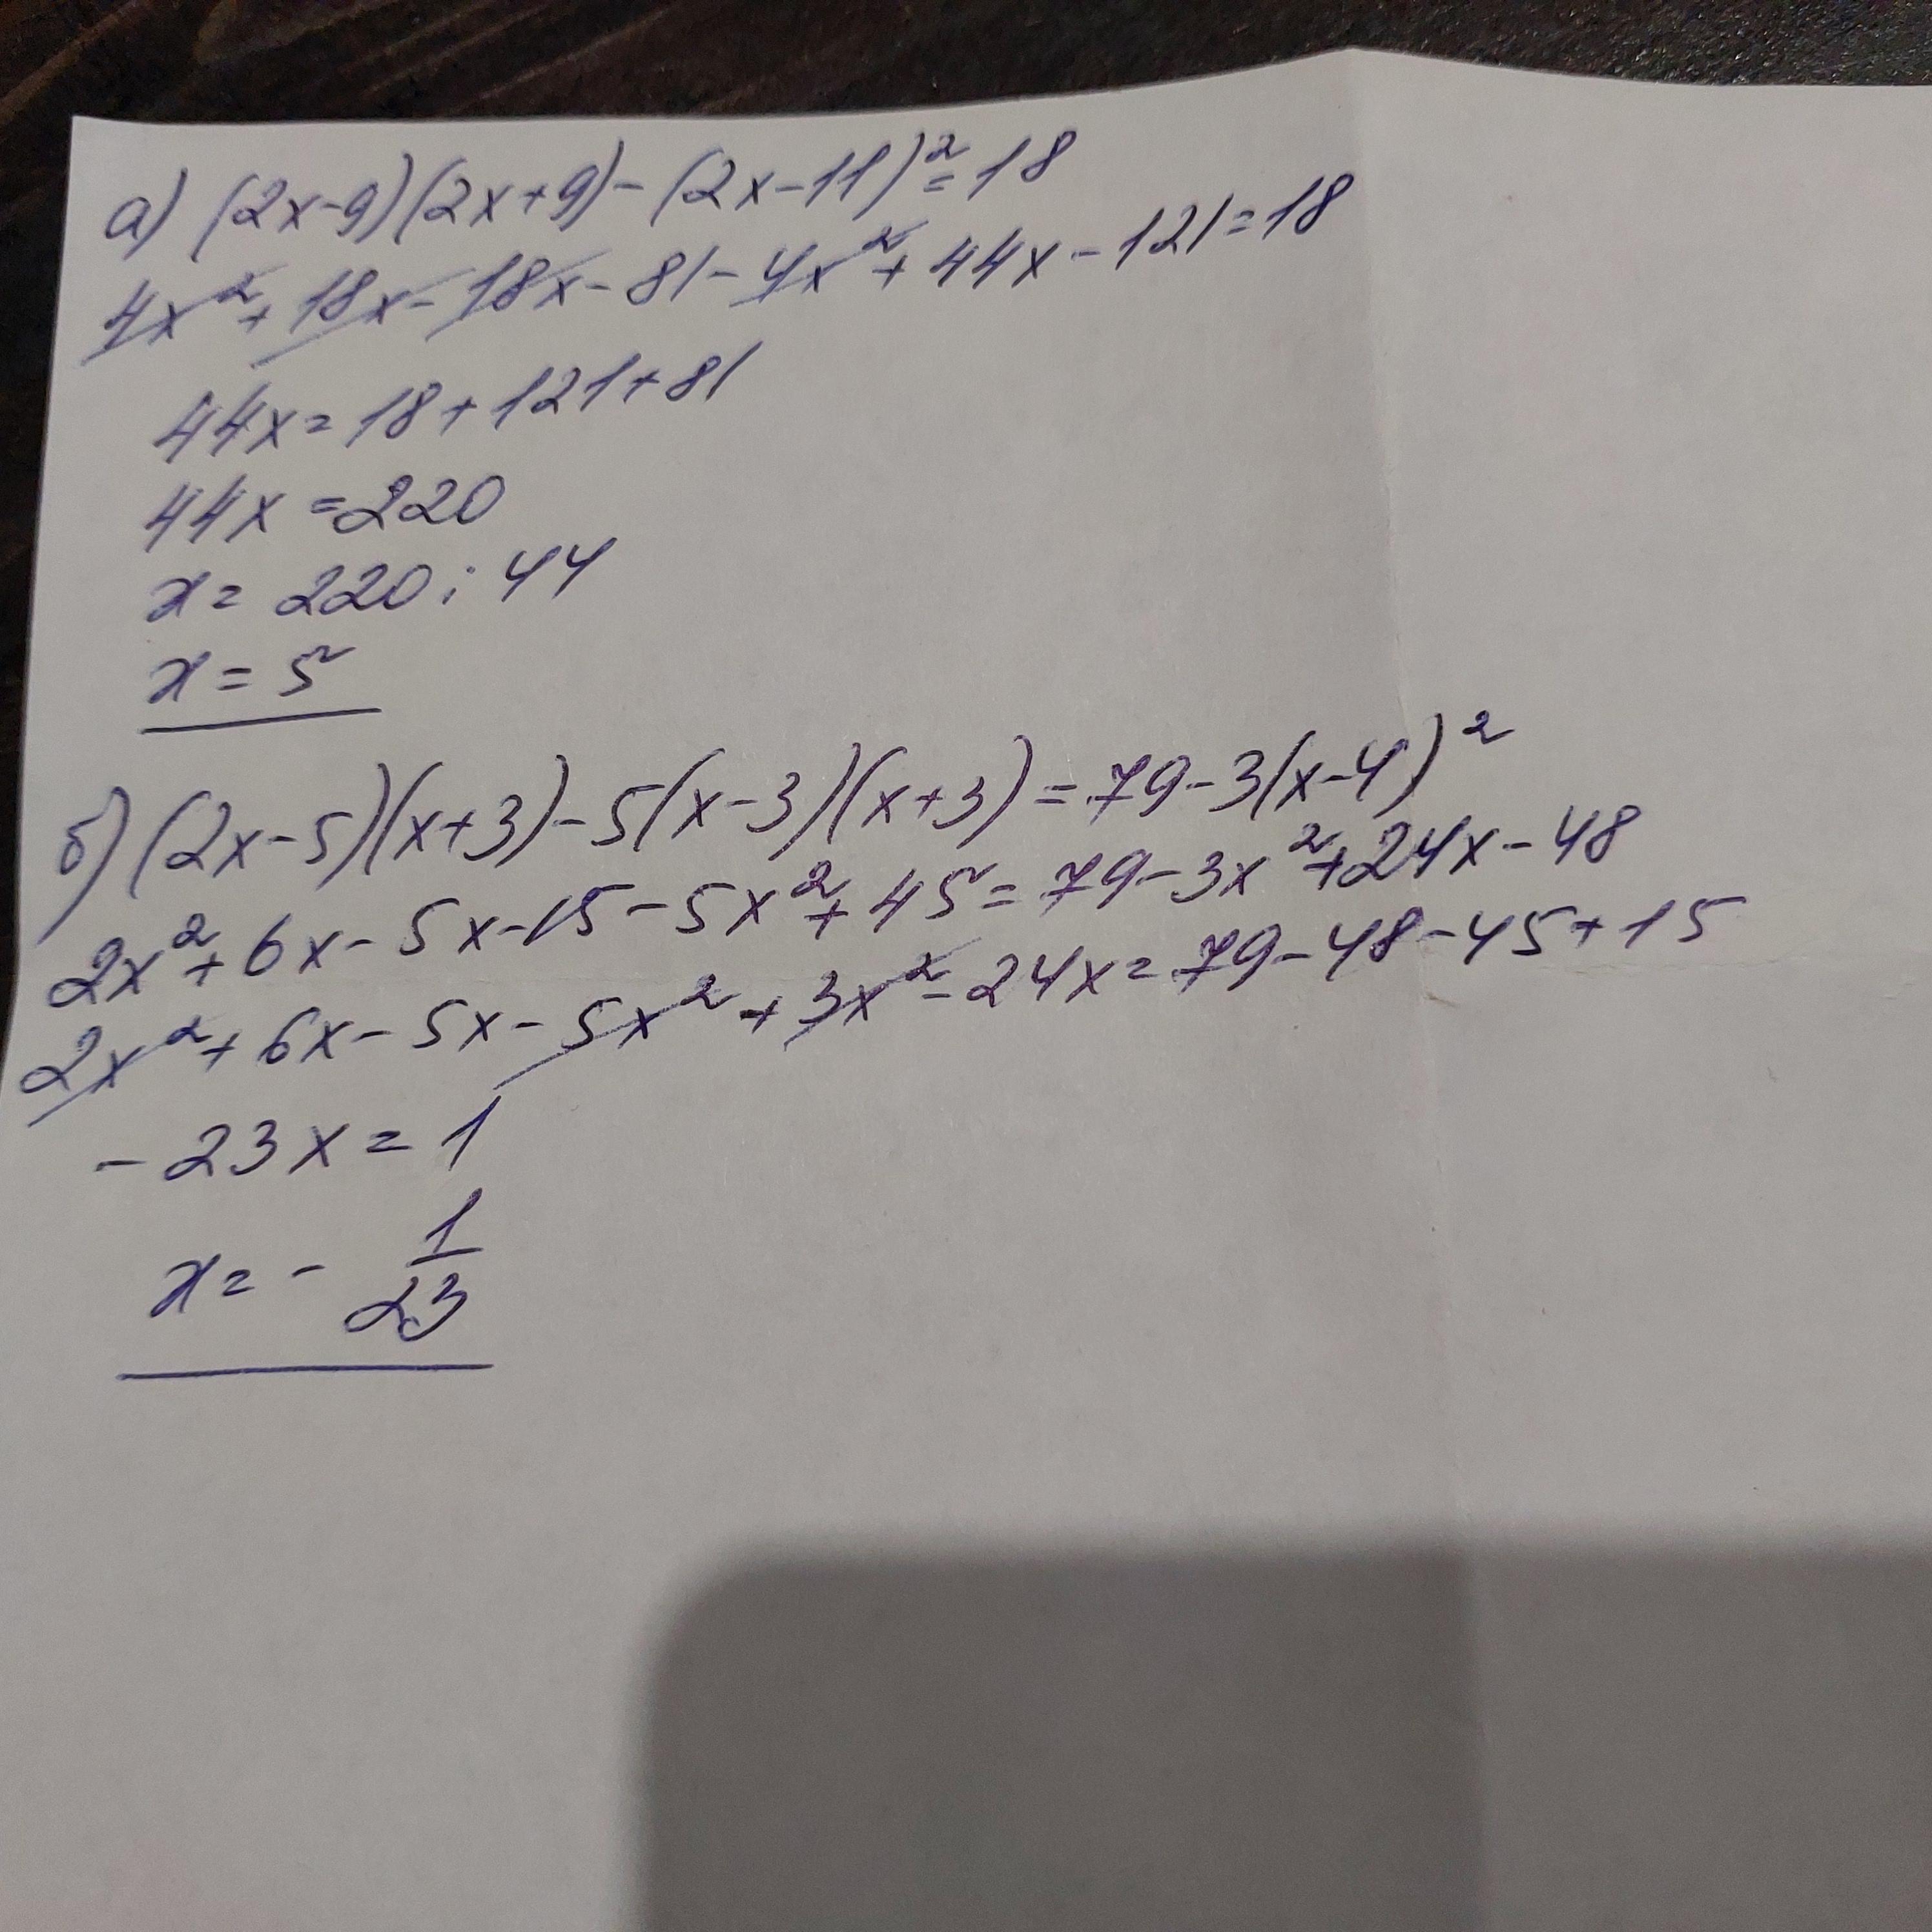 а) (2x-9)(2x+9)-(2x-11)²=18
4x²+18x-18x-81-4x²+44x-121=18
44x=18+121+81
44x=220
x=220:44
x=5
б) (2x-5)(x+3)-5(x-3)(x+3)=79-3(x-4)²
2x²+6x-5x-15-5x²+45=79-3x²+24x-48
2x²+6x-5x-5x²+3x²-24x=79-48-45+15
-23x=1
x=-1/23